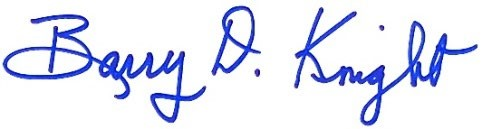 Barry D. Knight